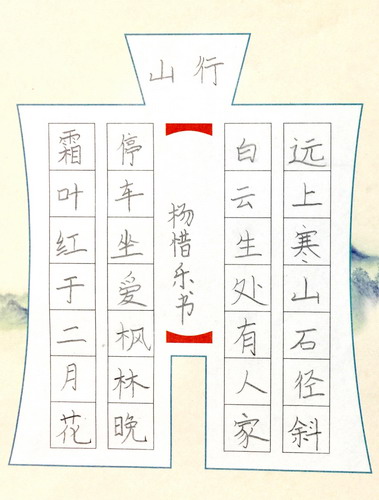 山行
远上寒山石径斜
白云生处有人家
杨惜乐书
停车坐爱枫林晚
霜叶红于二月花